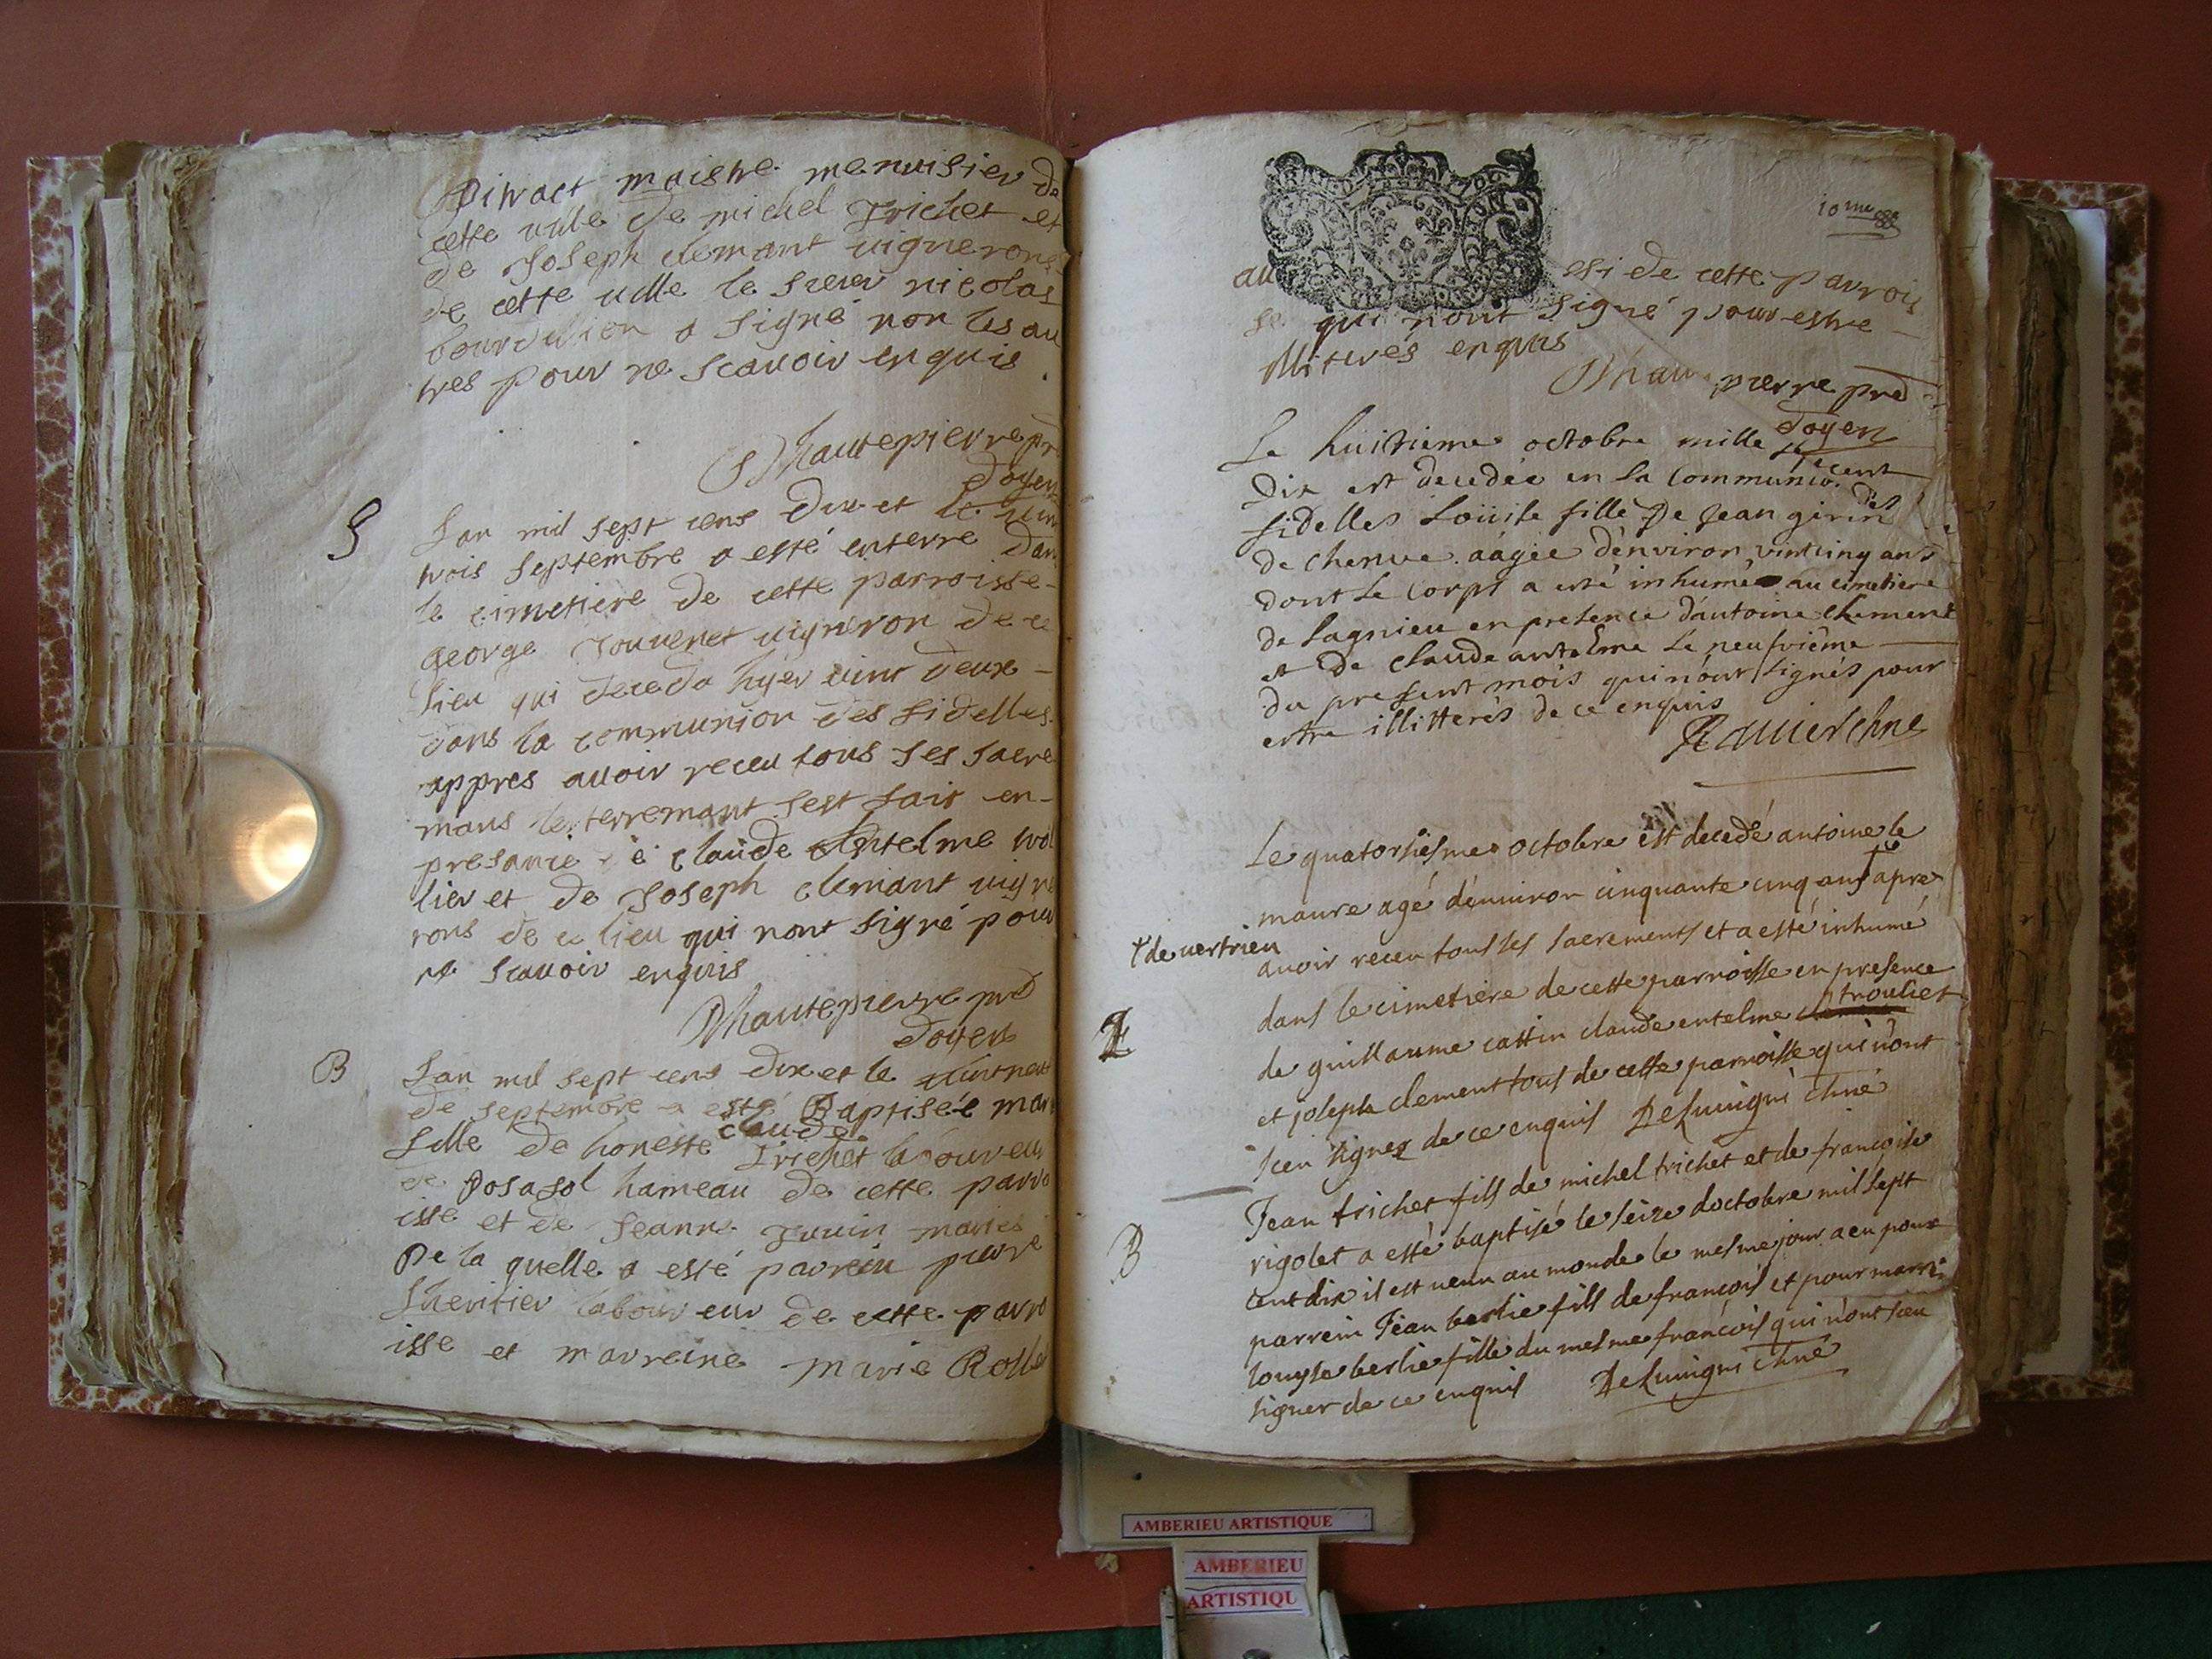 maistre menuisier de
cette ville de michel Trichet et
de Joseph clemant vignerons
de cette ville le sieur nicolas
bourdilion a signé non les au
tres pour ne scavoir enquis
Dhautepierre pr
doyen
S
Lan mil sept cens dix et le vin
trois septembre a esté enterre dan
le cimetiere de cette parroisse
George Jouvenet vigneron de ce
lieu qui deceda hyer vint deux
dans la communion des fidelles
appres avoir receu tous ses sacre
mans lenterremant sest fait en
presance de claude Antelme tvol
lier et de Joseph clemant vigne
rons de ce lieu qui nont signé pour
ne scavoir enquis
Dhautepierre prd
doyen
B
Lan mil sept cens dix et le vint neuf
de septembre a esté Baptisée mar
fille de honeste claude Trichet laboureur
de Posafol hameau de cette parro
isse et de Jeanne Juvin mariés
De la quelle a esté parrein pierre
Lheritier laboureur de cette parro
isse et marreine marie Rolle
10me
au esi de cette parrois
se qui nont signé pour estre
illiterés enquis
Dhautepierre prd
doyen
Le huitieme octobre mille sept cent
dix est decedée en la communio. des
fidelles Loüise fille De Jean girin
de chenve aagée d'environ vintcinq ans
dont le corps a esté inhumé au cimetiere
de Lagnieu en presence d'antoine clement
et de claude antelme Le neufvième
du present mois qui n'ont signés pour
estre illitterés de ce enquis
Ravier chne
Le quatorsiesme octobre est decedé antoine le
maure agé d'environ cinquante cinq ans † apres
† de vertrieu
avoir receu tous ses sacrements et a esté inhumé
dans le cimetiere de cette parroisse en presence
de guillaume cattin claude antelme trouliet
et joseph clement tous de cette parroisse qui n'ont
sceu signer de ce enquis Deluuigni chne
B
Jean trichet fils de michel trichet et de francoise
rigolet a esté baptisé le seize doctobre mil sept
cent dix il est venu au monde le mesme jour a eu pour
parrein Jean berlie fils de françois et pour marrei
louyse berlie fille du mesme françois qui n'ont sceu
signer de ce enquis Deluuigni chne
AMBERIEU ARTISTIQUE
AMBERIEU
ARTISTIQU